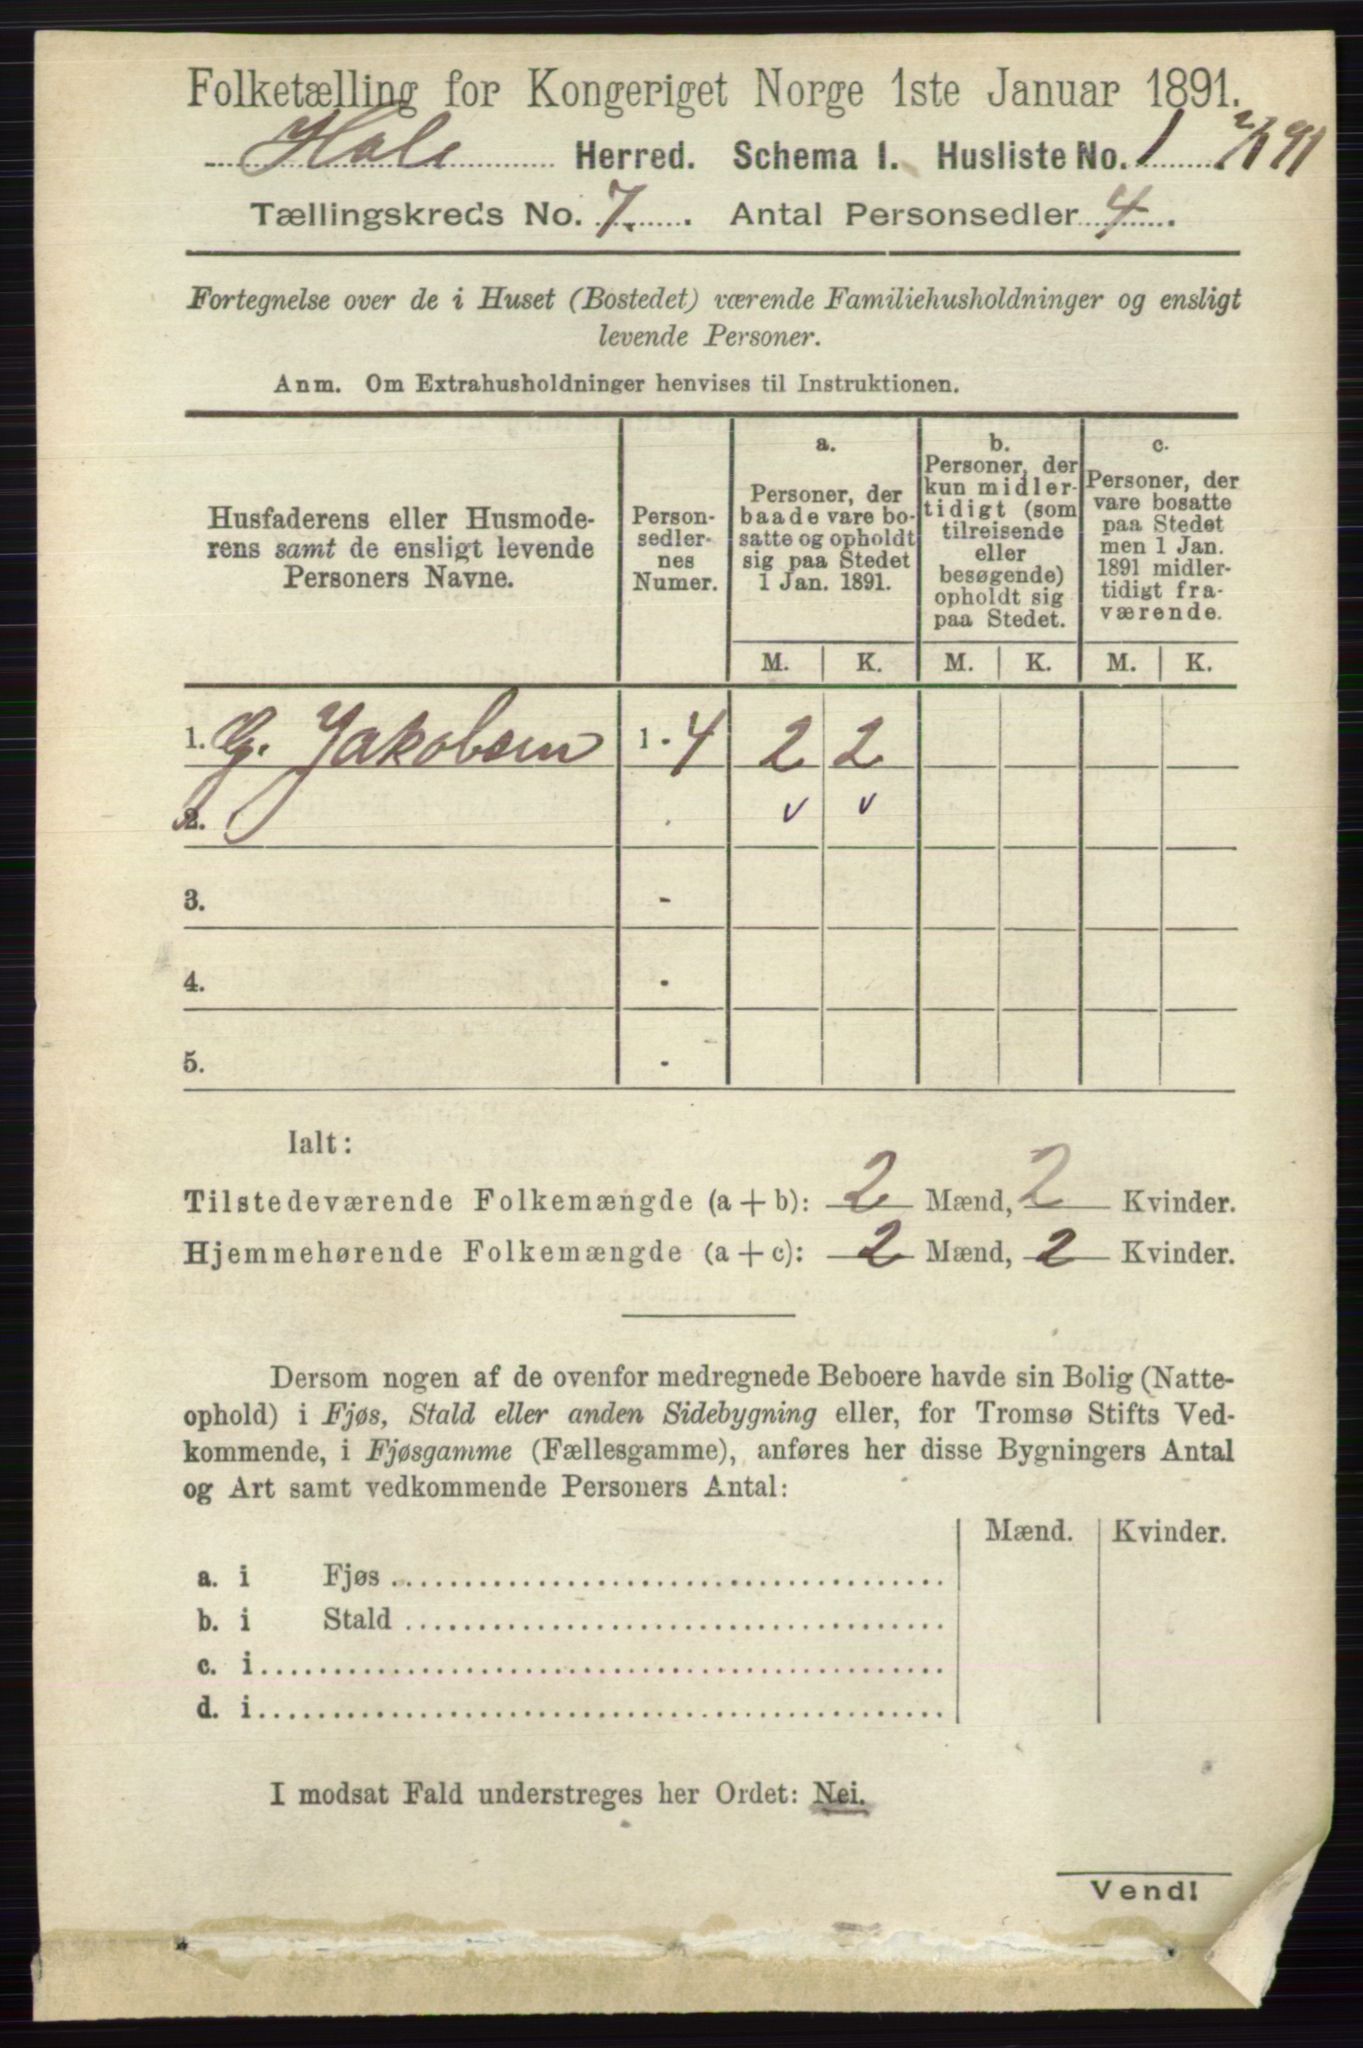 Folketælling for Kongeriget Norge 1ste Januar 1891.
Hole Herred. Schema I. Husliste No. 1
Tællingskreds No. 7. Antal Personsedler 4.
Fortegnelse over de i Huset (Bostedet) værende Familiehusholdninger og ensligt
levende Personer.
Anm. Om Extrahusholdninger henvises til Instruktionen.
Husfaderens eller Husmode-
rens samt de ensligt levende
Personers Navne.
Person-
sedler-
nes
Numer.
a.
Personer, der
baade vare bo-
satte og opholdt
sig paa Stedet
1 Jan. 1891.
b.
Personer, der
kun midler-
tidigt (som
tilreisende
eller
besøgende)
opholdt sig
paa Stedet.
c.
Personer, der
vare bosatte
paa Stedet
men 1 Jan.
1891 midler-
tidigt fra-
værende.
M. K. M. K. M. K.
1. G. Jakobsen 1 - 4 2 2
2. v v
3. -
4. -
5. -
Ialt:
Tilstedeværende Folkemængde (a + b): 2 Mænd, 2 Kvinder.
Hjemmehørende Folkemængde (a + c): 2 Mænd, 2 Kvinder.
Dersom nogen af de ovenfor medregnede Beboere havde sin Bolig (Natte-
ophold) i Fjøs, Stald eller anden Sidebygning eller, for Tromsø Stifts Ved-
kommende, i Fjøsgamme (Fællesgamme), anføres her disse Bygningers Antal
og Art samt vedkommende Personers Antal:
Mænd. Kvinder.
a. i Fjøs
b. i Stald
c. i
d. i
I modsat Fald understreges her Ordet: Nei.
Vend!